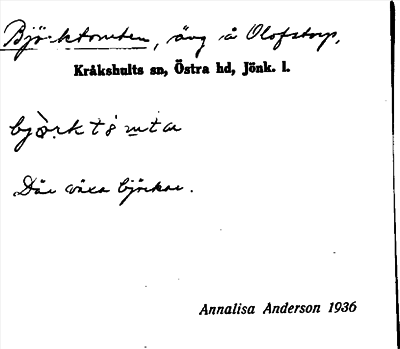 Björktomten, äng å Olofstorp,
Kråkshults sn, Östra hd, Jönk. l.
bjò̱rktömta
Där växa björkar.
Annalisa Anderson 1936